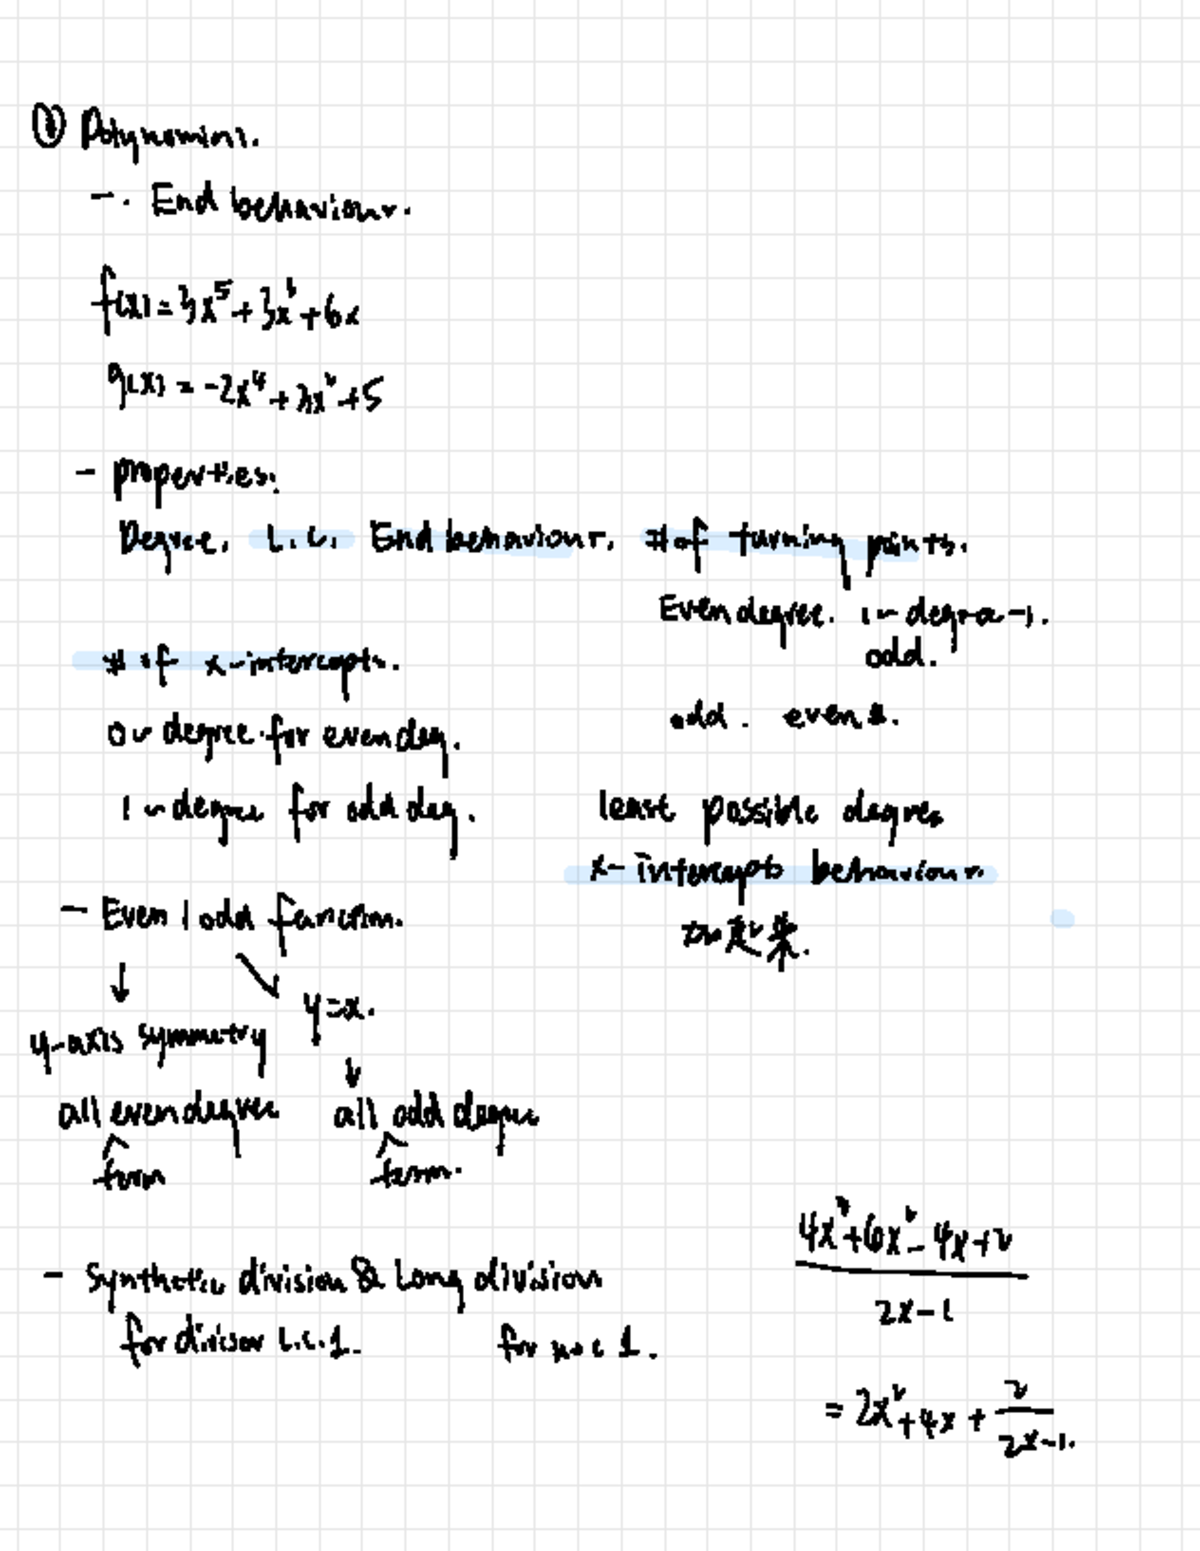 ① Polynomials.
-. End behaviour.
f(x) = 3x⁵ + 3x² + 6x
g(x) = -2x⁴ + 3x² + 5
- properties:
Degree. L.C. End behaviour. # of turning points.
Even degree. 1~degree-1.
odd.
# of x-intercepts.
odd. even.
0~degree for even deg.
1~degree for odd deg.
least possible degree
x-intercepts behaviour
- Even / odd function.
↓ ↘ y=x.
y-axis symmetry
↓
all even degree
^
term
all odd degree
^
term.
- Synthetic division & Long division
for divisor L.C. 1. for not 1.
4x³+6x²-4x+2
2x-1
= 2x²+4x + 2
2x-1.